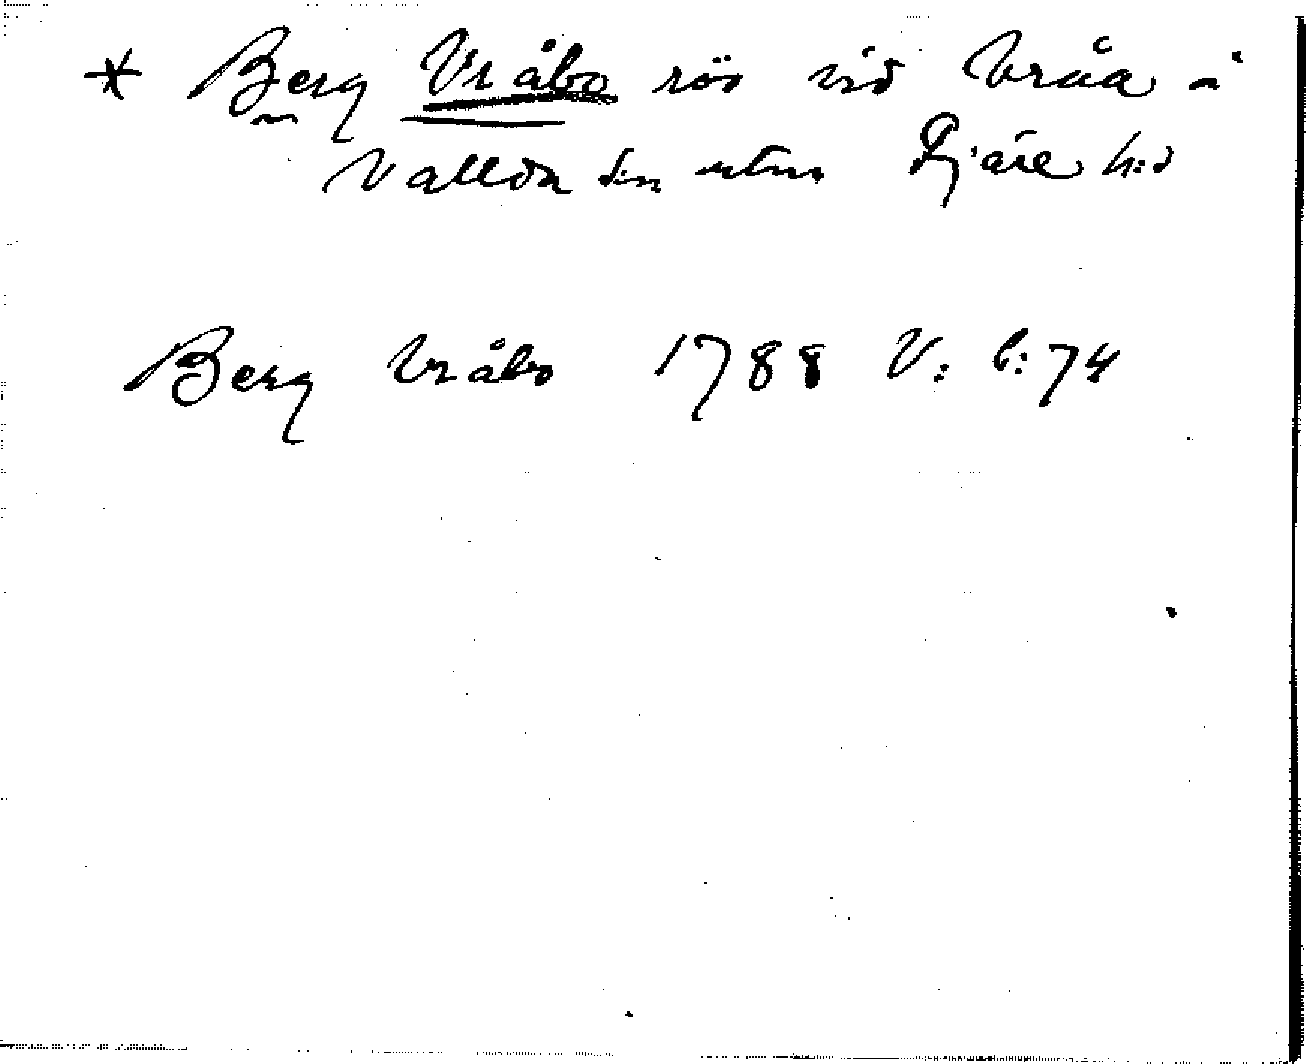 * Berg Vråbo rös vid Vråa i
Vallda sn utm. Fjäre h:d
Berg Vråbo 1788 V: b: 74